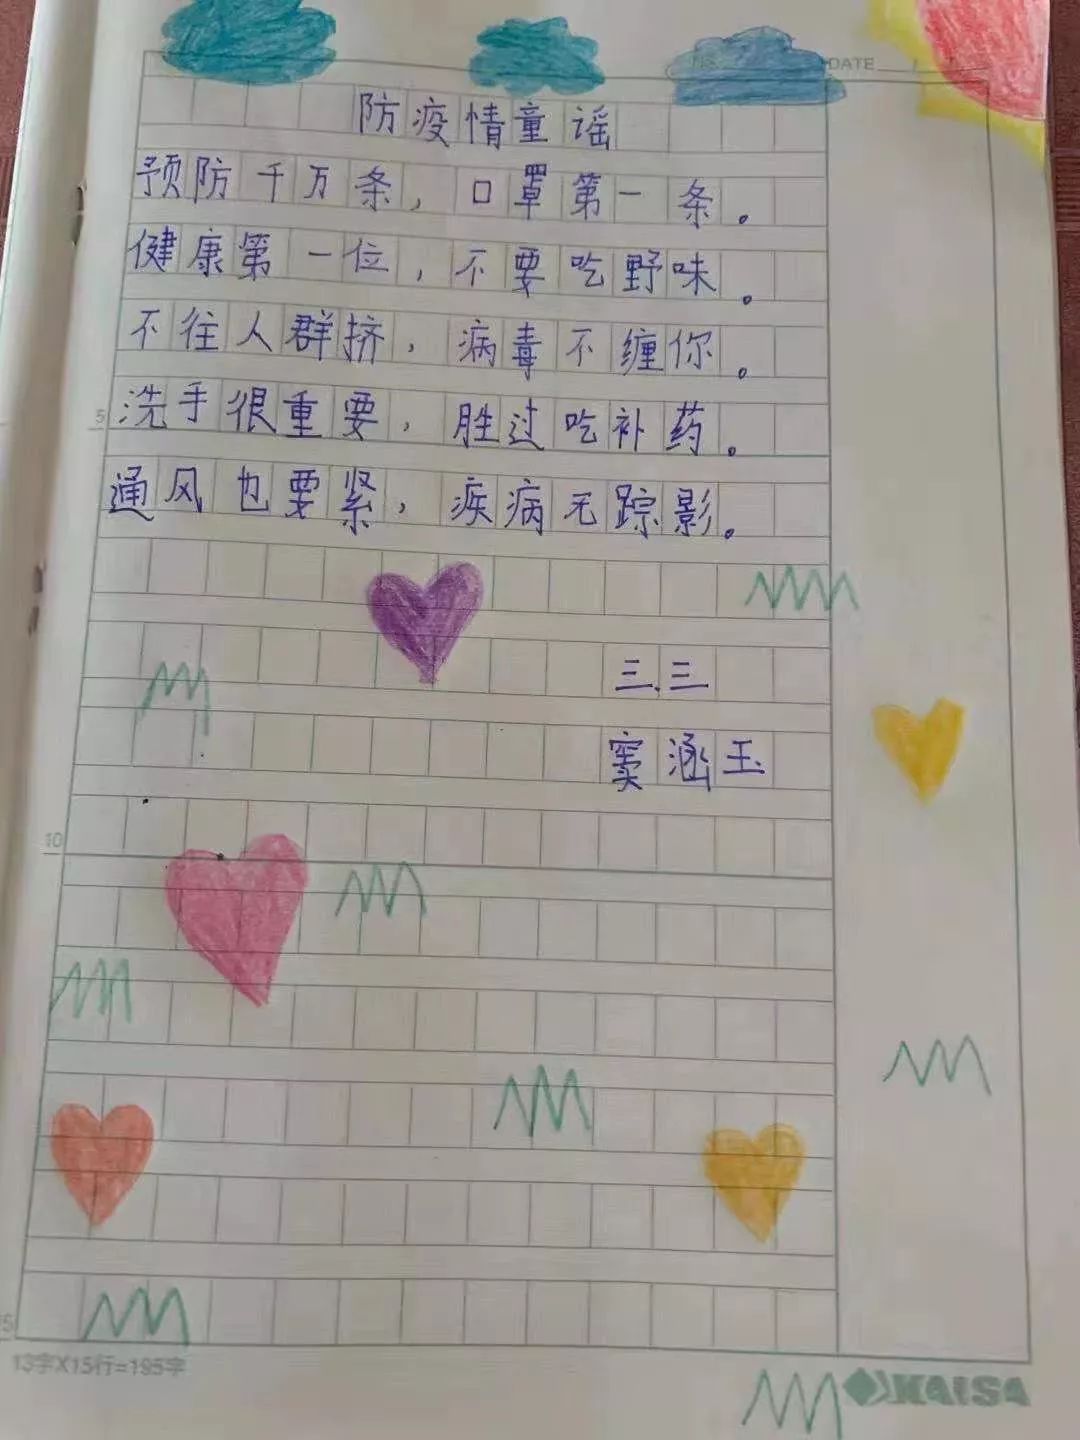 DATE
防疫情童谣
预防千万条,口罩第一条。
健康第一位,不要吃野味。
不往人群挤,病毒不缠你。
5
洗手很重要,胜过吃补药。
通风也要紧,疾病无踪影。
三、三
窦涵玉
10
13字X15行=195字
KAISA